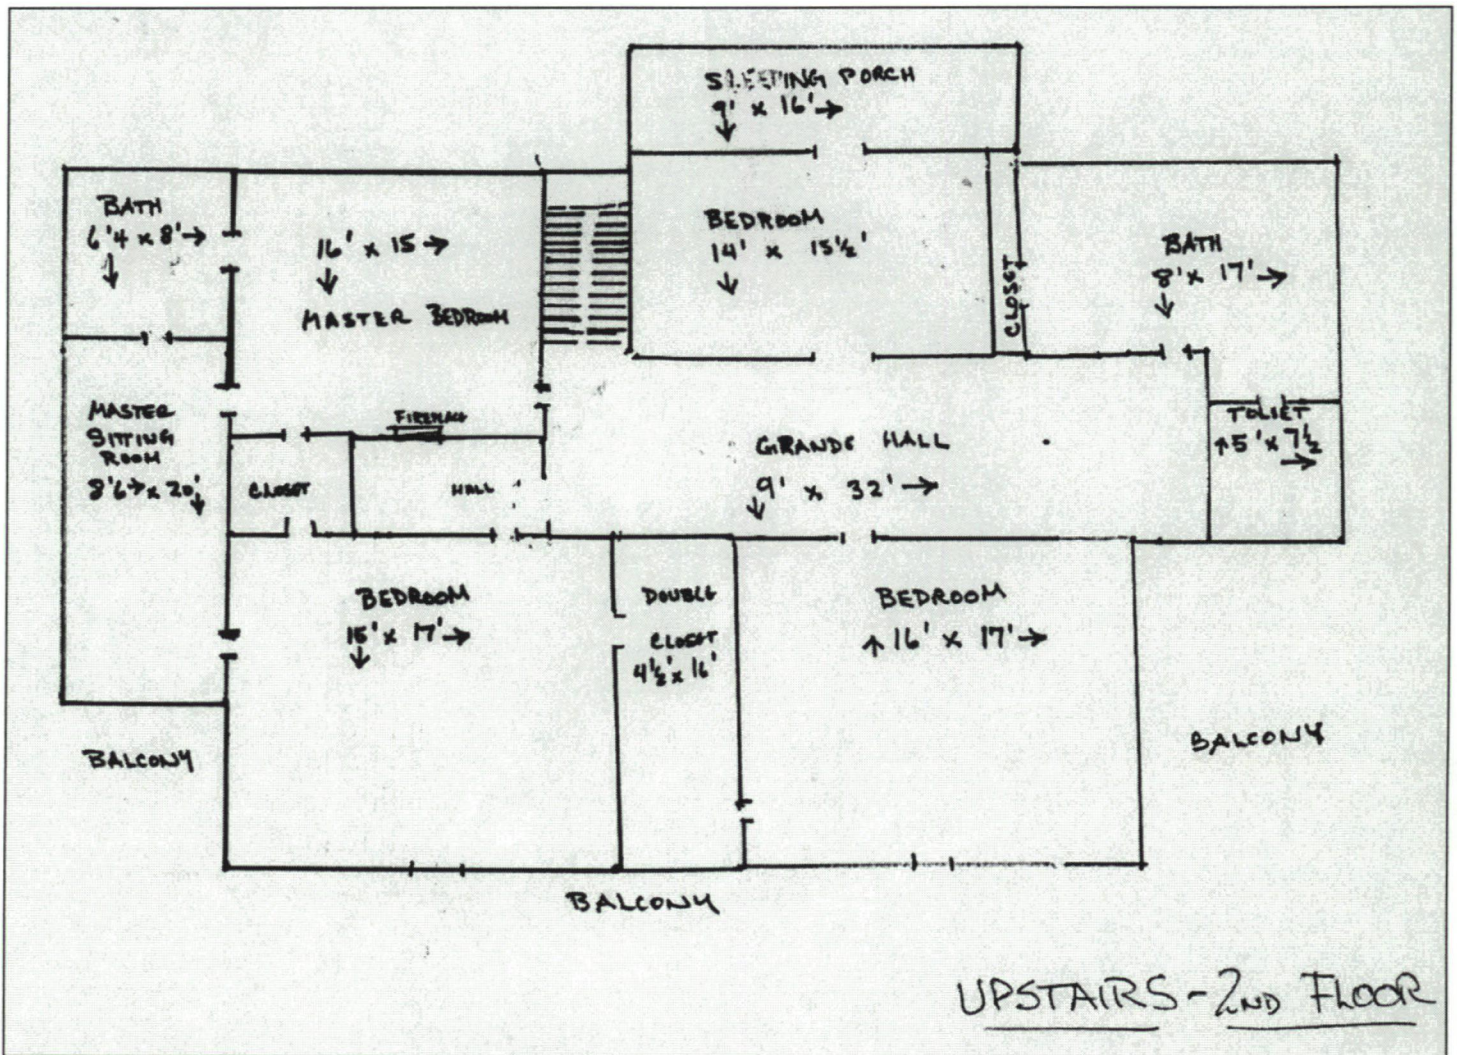 SLEEPING PORCH
9' x 16' →
↓
BATH
6'4 x 8' →
↓
16' x 15 →
↓
MASTER BEDROOM
BEDROOM
14' x 15½'
↓
CLOSET
BATH
8' x 17' →
↓
MASTER
SITTING
ROOM
8'6 → x 20'
↓
FIREPLACE
CLOSET
HALL
GRANDE HALL
9' x 32' →
↓
TOLIET
↑ 5' x 7½
→
BEDROOM
15' x 17' →
↓
DOUBLE
CLOSET
4½' x 16'
BEDROOM
↑ 16' x 17' →
BALCONY
BALCONY
BALCONY
UPSTAIRS - 2ND FLOOR